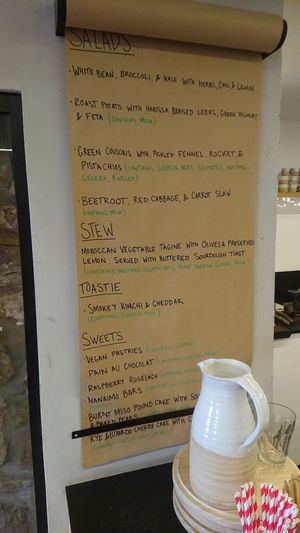 SALADS
· WHITE BEAN, BROCCOLI, & KALE WITH HERBS, CHILI & LEMON
· ROAST POTATO WITH HARISSA BRAISED LEEKS, GREEK YOGHURT
& FETA (CONTAINS MILK)
· GREEN COUSCOUS WITH PICKLED FENNEL, ROCKET, &
PISTACHIOS (CONTAINS GLUTEN, NUTS, SULPHITES, MUSTARD,
CELERY, BARLEY)
· BEETROOT, RED CABBAGE, & CARROT SLAW
(CONTAINS MILK)
STEW
MOROCCAN VEGETABLE TAGINE WITH OLIVES & PRESERVED
LEMON. SERVED WITH BUTTERED SOURDOUGH TOAST
(CONTAINS MUSTARD, CELERY, NUTS, TOAST CONTAINS GLUTEN, MILK)
TOASTIE
· SMOKEY KIMCHI & CHEDDAR
(CONTAINS GLUTEN, MILK)
SWEETS
· VEGAN PASTRIES (CONTAINS GLUTEN)
· PAIN AU CHOCOLAT (CONTAINS GLUTEN, MILK)
· RASPBERRY RUGELACH (CONTAINS GLUTEN
· NANAIMO BARS (CONTAINS GLUTEN
· BURNT MISO POUND CAKE WITH
& BAKED PEARS
· RYE & LUXARDO CHERRY CAKE WITH